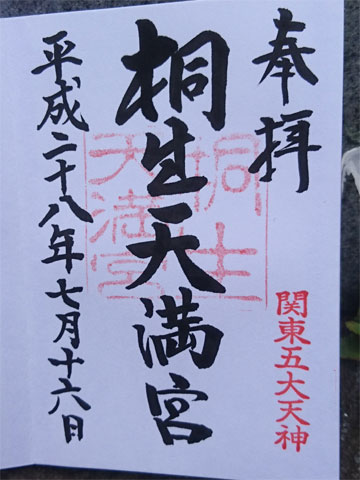 奉拝
関東五大天神
桐生天満宮
桐生
天満宮
平成二十八年七月十六日